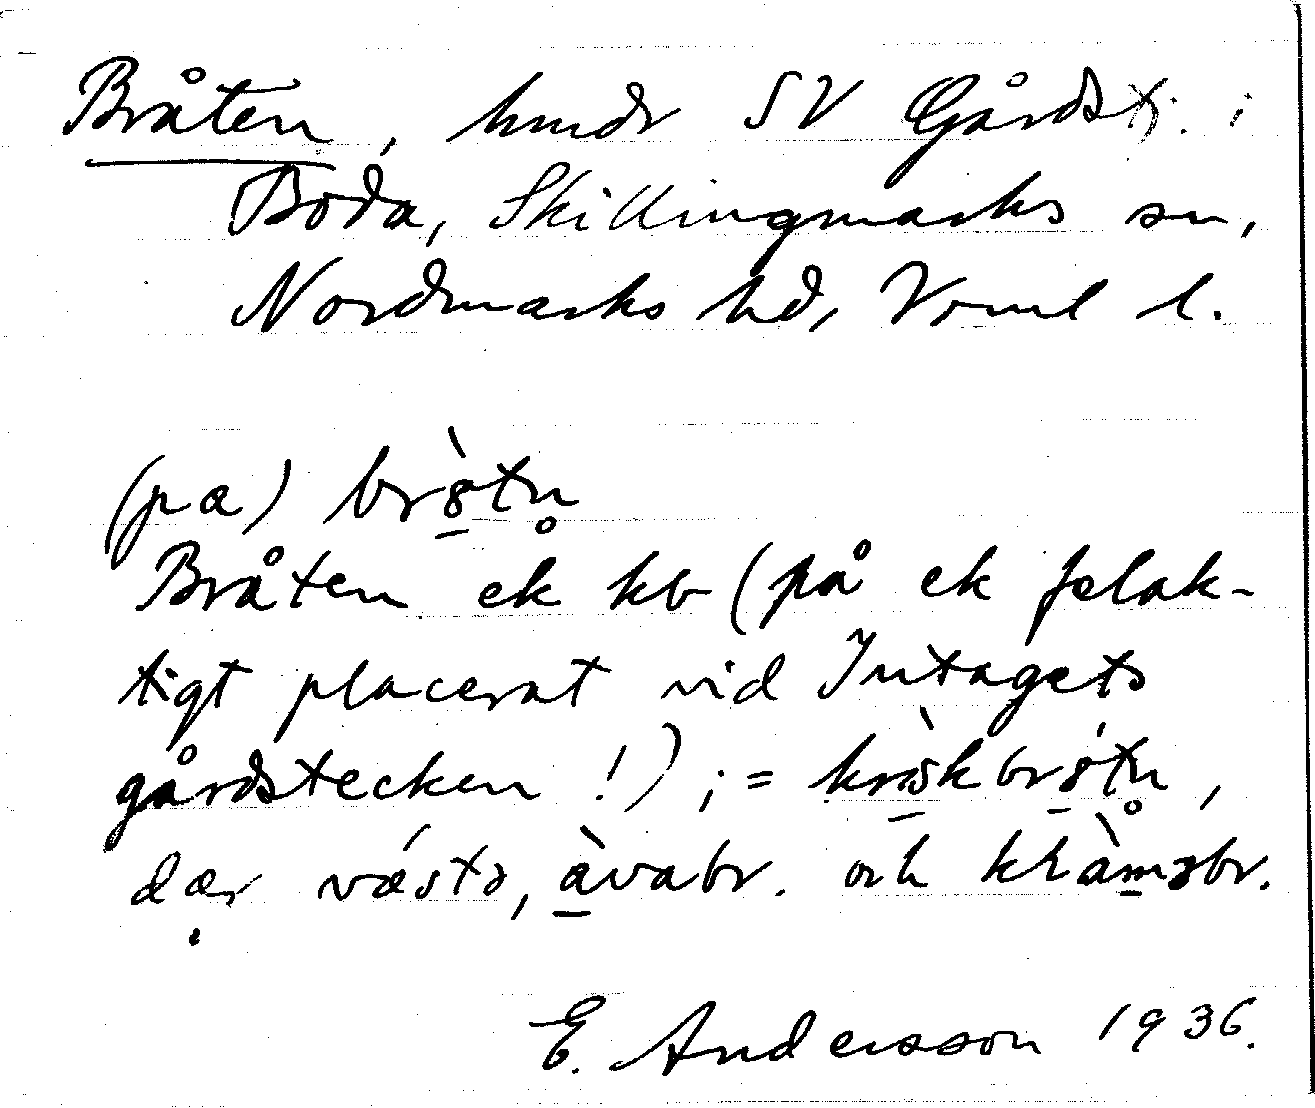 Bråten, hmdr SV Gårdstj. i
Boda, Skillingmarks sn,
Nordmarks hd, Vrml l.
(pa) brò̱tn̥
Bråten ek kb (på ek felak-
tigt placerat vid Intagets
gårdstecken!); =
dær væstə, àvabr. och
E. Andersson 1936.